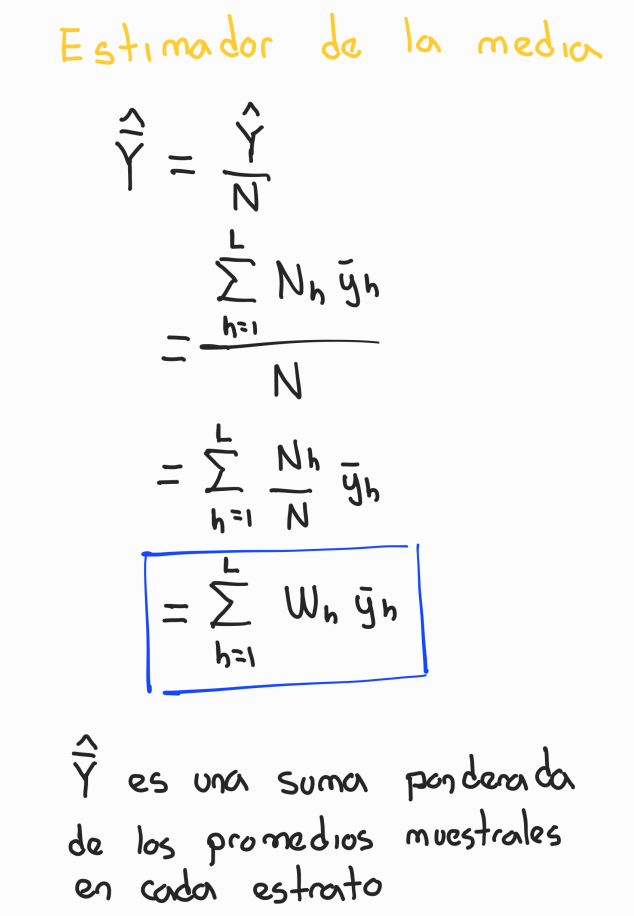 Estimador de la media
$\hat{\bar{Y}} = \frac{\hat{Y}}{N}$
$= \frac{\sum_{h=1}^{L} N_h \bar{y}_h}{N}$
$= \sum_{h=1}^{L} \frac{N_h}{N} \bar{y}_h$
$= \sum_{h=1}^{L} W_h \bar{y}_h$
$\hat{\bar{Y}}$ es una suma ponderada
de los promedios muestrales
en cada estrato